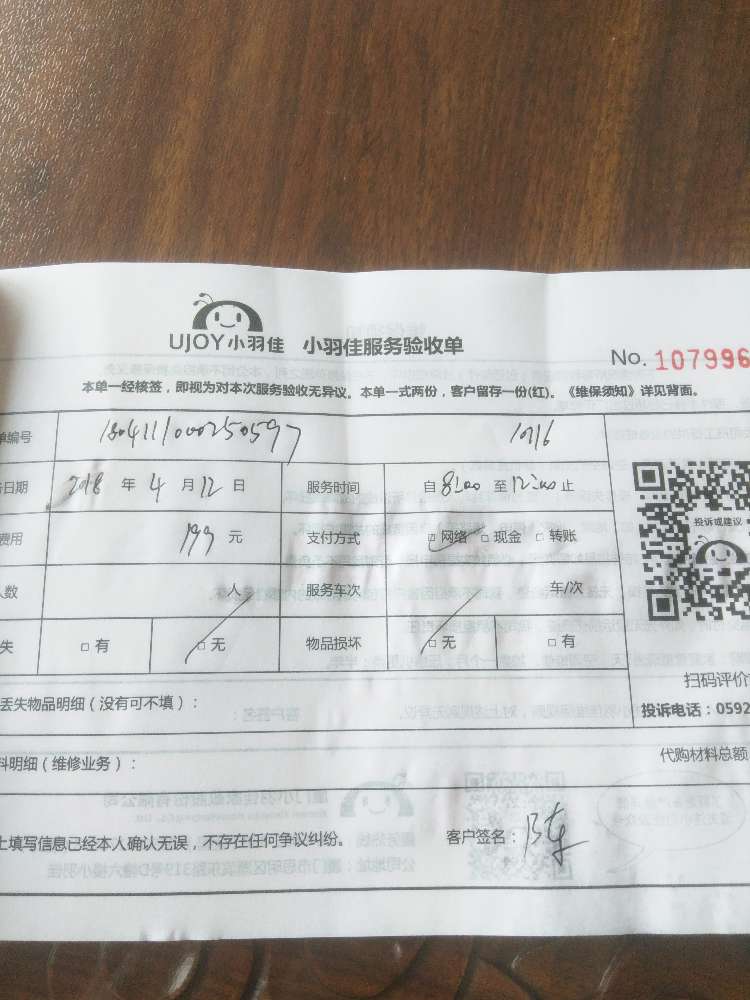 UJOY小羽佳 小羽佳服务验收单
No. 107996
本单一经核签，即视为对本次服务验收无异议。本单一式两份，客户留存一份(红)。《维保须知》详见背面。
单编号 1804111000250597 10716
务日期 2018 年 4 月 12 日 服务时间 自 8:00 至 12:00 止
费用 199 元 支付方式 网络 现金 转账
投诉或建议
人数 人 服务车次 车/次
失 有 无 物品损坏 无 有
扫码评价
丢失物品明细（没有可不填）：
投诉电话：0592
料明细（维修业务）：
代购材料总额
上填写信息已经本人确认无误，不存在任何争议纠纷。 客户签名：